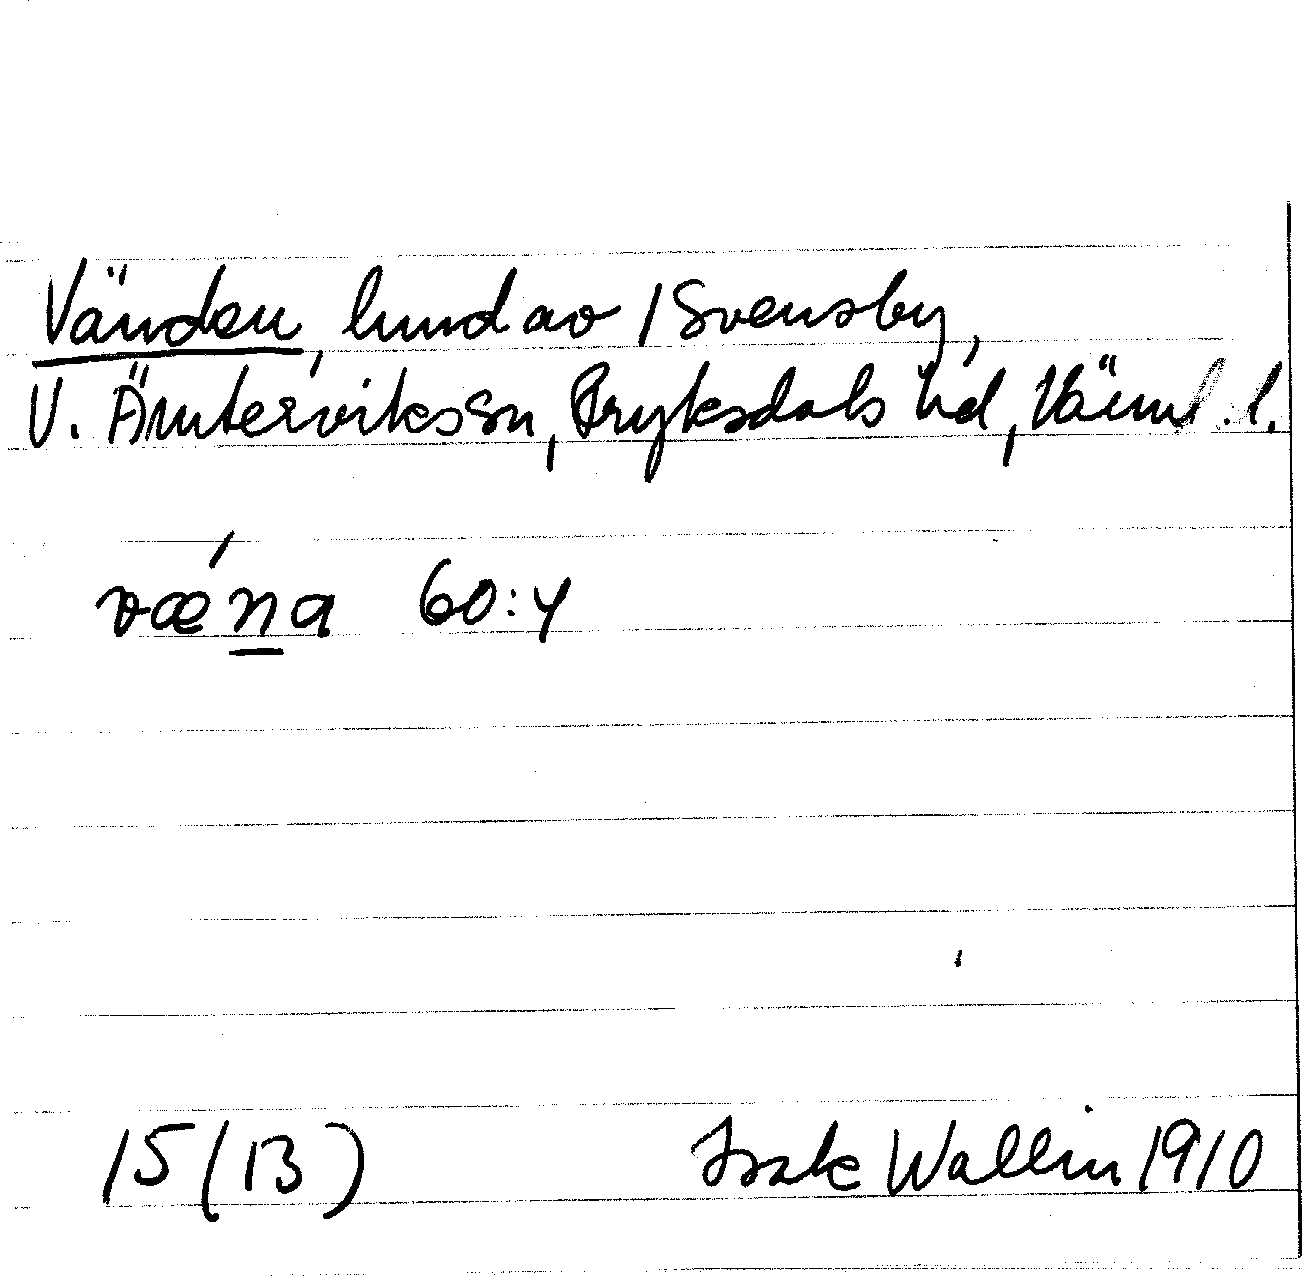 Vänden, hmd av 1 Svensby,
V. Ämterviks sn, Fryksdals hd, Värml. l.
væ´na 60:4
15 (13) Isak Wallin 1910